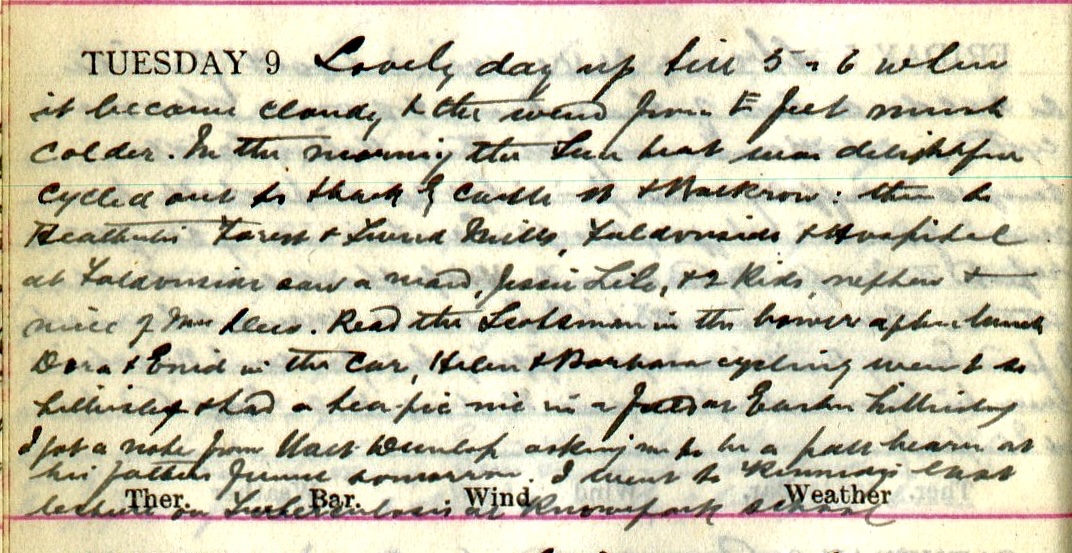 TUESDAY 9 Lovely day up till 5-6 when
it became cloudy & the wind from E feet much
colder. In the morning the Sun heat was delightful
Cycled out to & Castle St & : then to
Forest & Mills, Faldonside & Hospital
at Faldonside saw a maid, Jessie , & 2 Kids, nephew &
niece of Mrs . Read the Scotsman in the bower after lunch
Dora & Enid in the Car, Helen & Barbara cycling went to
& had a tea-pic nic in a field at Easter
I got a note from Walt Dunlop asking me to be a pall bearer at
his fathers funeral tomorrow. I went to Kennedy's last
Ther. Bar. Wind Weather
lecture on Tuberculosis at Knowepark School